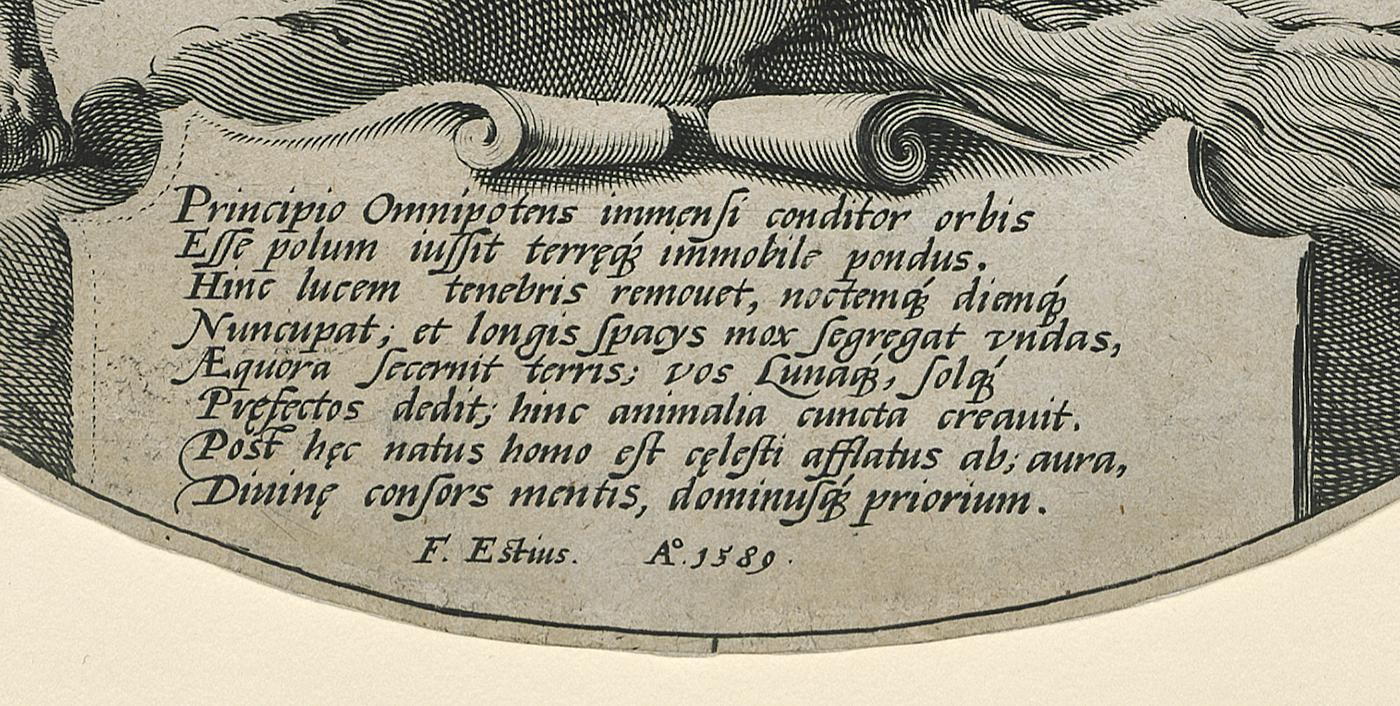 Principio Omnipotens immenſi conditor orbis
Eſſe polum iuſſit terręq́ꝫ immobile pondus.
Hinc lucem tenebris remouet, noctemq́ꝫ diemq́ꝫ
Nuncupat; et longis ſpacys mox ſegregat vndas,
Æquora ſecernit terris; vos Lunaq́ꝫ, ſolq́ꝫ
Pręfectos dedit; hinc animalia cuncta creauit.
Post hęc natus homo eſt cęleſti afflatus ab; aura,
Diuinę conſors mentis, dominuſq́ꝫ priorium.
F. Estius. Aº. 1589.